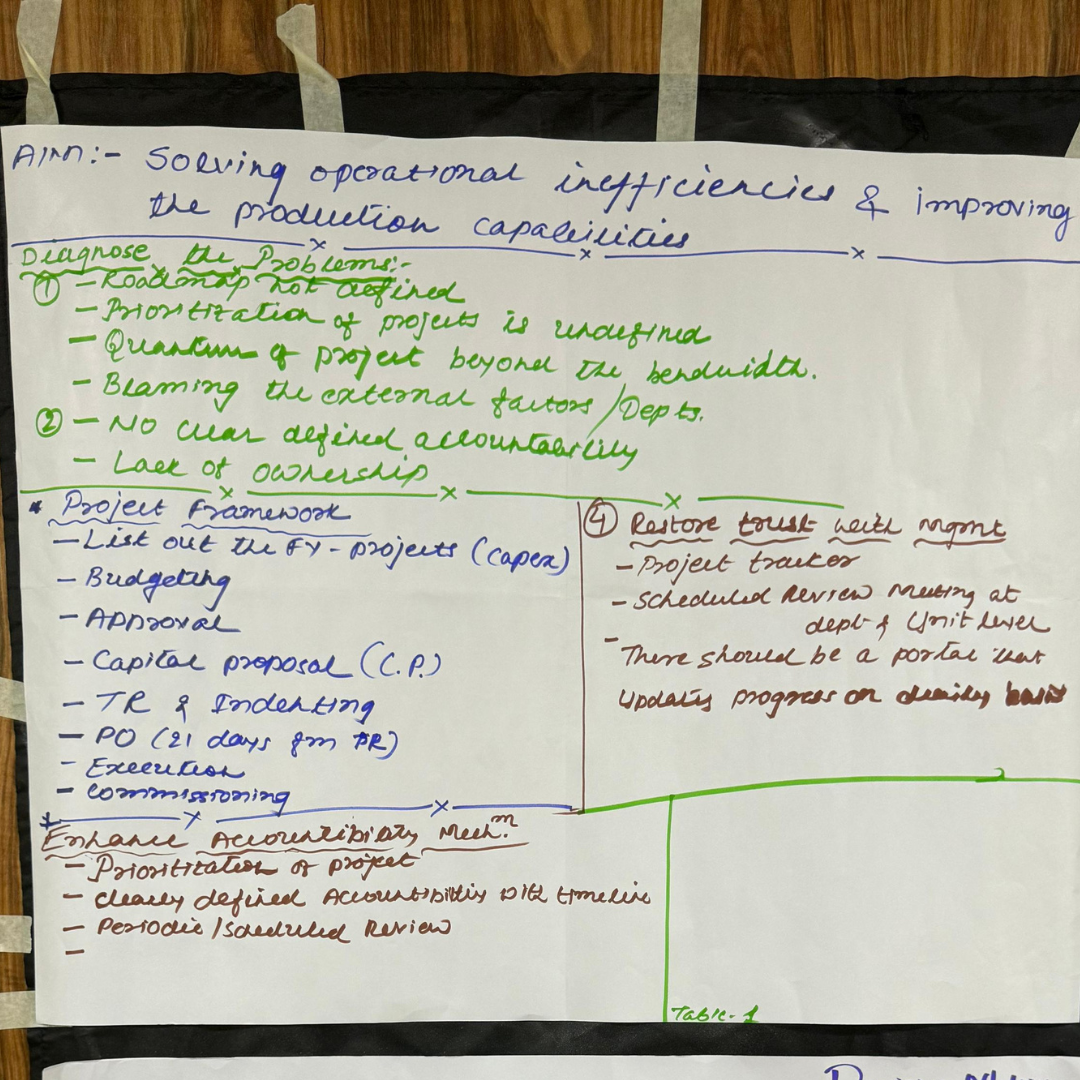 Aim:- Solving operational inefficiencies & improving
the production capabilities
Diagnose the Problems:-
① - Roadmap not defined
- Prioritization of projects is undefined
- Quantum of project beyond the bendwidth.
- Blaming the external factors / Depts.
② - No clear defined accountability
- Lack of ownership
* Project Framework
- List out the FY - projects (capex)
- Budgeting
- Approval
- Capital proposal (C.P.)
- TR & Indenting
- PO (21 days frm PR)
- Execution
- Commissioning
④ Restore trust with mgmt
- Project tracker
- Scheduled Review Meeting at
dept & Unit level
- There should be a portal that
Updates progress on basis
* Enhance Accountibility Mechm.
- Prioritization of project
- clearly defined Accountibility with timeline
- Periodic / Scheduled Review
-
Table-1